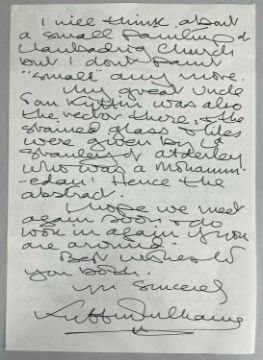 I will think about
a small painting of
Llanbadrig Church
but I dont paint
"small" any more.
My great uncle
Tom Kyffin was also
the rector there, & the
stained glass & tiles
were given by Ld
Stanley of Alderley
who was a Mohamm-
-edan: Hence the
abstract.
I hope we meet
again soon & do
look in again if you
are around.
Best wishes to
you both.
Yrs Sincerely
Kyffin Williams